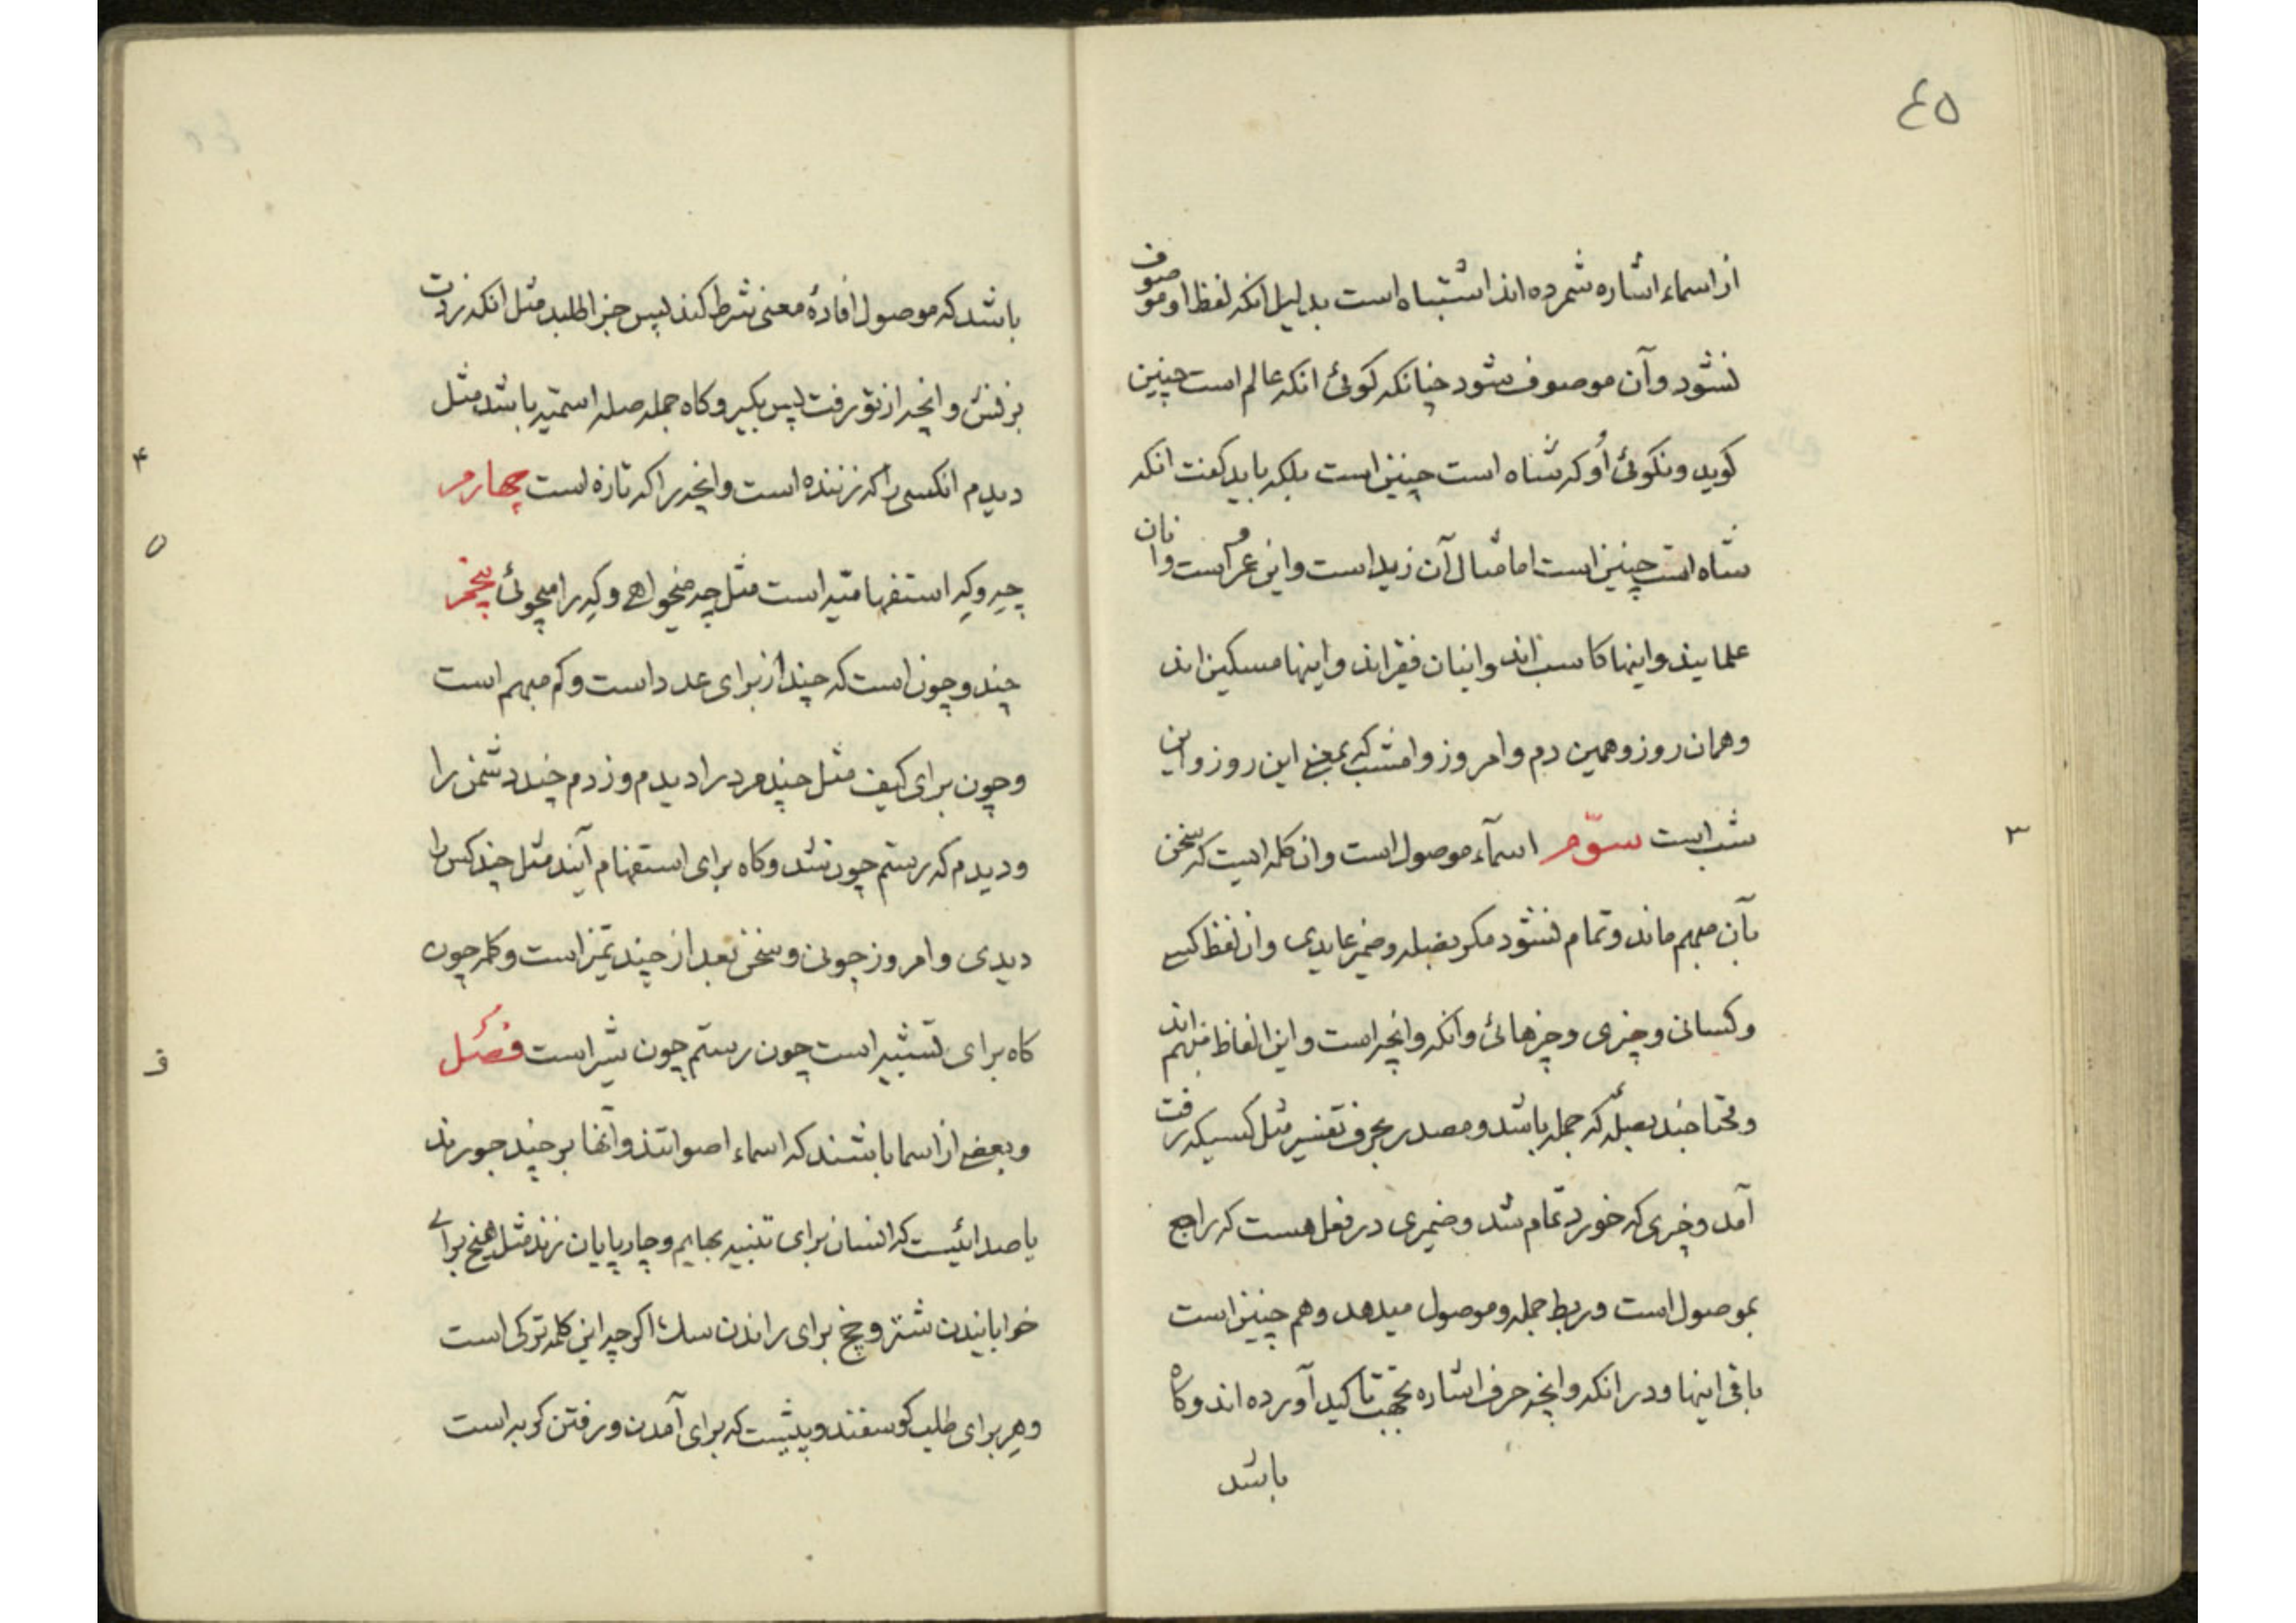 ٤٥
از اسماء اشاره شمرده اند اشتباه است بدلیل انکه لفظ او موصوف
نشود و آن موصوف شود چنانکه کوئی انکه عالم است چنین
کوید و نکوئی اُو که شاه است چنین است بلکه باید کفت انکه
شاه است چنین است اما مثال آن زید است و این عمر است و انان
علمایند و اینها کاسب اند و اینان فقیراند و اینها مسکین اند
و همان روز و همین دم و امروز و امشب که بمعنی این روز و این
شب است سوّم اسمآء موصول است و ان کلمه ایست که سخن
بآن مبهم ماند و تمام نشود مکر بصله و ضمیر عایدی و ان لفظ کسی
و کسانی و چیزی و چیزهائی و انکه و انچه است و این الفاظ مبهم اند
و محتاجند بصلهٔ که جمله باشد و مصدر بحرف تفسیر مثل کسیکه رفت
آمد و چیزی که خورد تمام شد و ضمیری در فعل هست که راجع
بموصول است و ربط جمله و موصول میدهد و هم چنین است
باقی اینها و در انکه و انچه حرف اشاره بجهت تاکید آورده اند و کاه
باشد
٣
باشد که موصول افادهٔ معنی شرط کند پس جزا طلبد مثل انکه زدت
بزنش و انچه از تو رفت پس بکیر و کاه جمله صله اسمیّه باشد مثل
دیدم انکسی را که زننده است و انچه را که تازه است چهارم
چِه و کِه استفهامیّه است مثل چه میخواهی و کِه را میجوئی پنجم
چند و چون است که چند از برای عدد است و کم مبهم است
و چون برای کیف مثل چند مرد را دیدم و زدم چند دشمن را
و دیدم که رستم چون شد و کاه برای استفهام آیند مثل چند کس را
دیدی و امروز چونی و سخن بعد از چند تمیز است و کلمه چون
کاه برای تشبیه است چون رستم چون شیر است فصل
و بعضی از اسما باشند که اسماء اصواتند و آنها بر چند جورند
یا صدائیست که انسان برای تنبیه بهایم و چارپایان زند مثل هیخ برای
خوابانیدن شتر و چخ برای راندن سک اکرچه این کلمه ترکی است
و هِر برای طلب کوسفند و پیشیست که برای آمدن و رفتن کربه است
۴
۵
ف